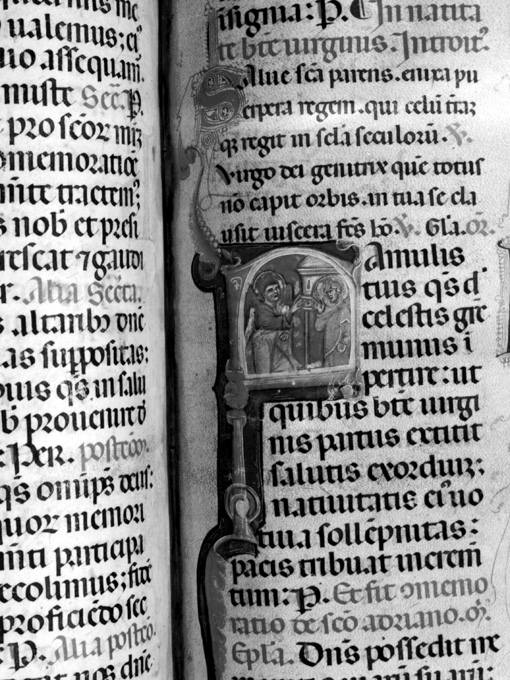 ualemus; ei
uo assequam̄.
muste Sec̄. P.
pro sc̄oꝝ
omemoratioē
nob̄ et presi
rescat ⁊ gaudi
Alia Sec̄ta.
altaribꝫ dn̄e
as suppositas:
uis q̄s in salu
b̄ proueniret
Per. postcō.
q̄s om̄ips̄ deus:
uor memori
īnti participa
ccolimus;
proficiēdo sec
P. Alia postcō.
insignia: P. In natiuita
te bt̄e uirginis. Introit̄.
Salue sc̄a parens. enixa pu
erpera regem. qui celū
qꝫ regit in sc̄la seculorū. V̄.
Virgo dei genitrix quē totus
nō capit orbis. in tua se cla
usit uiscera fc̄s hō. V̄. Gla. or̄.
Famulis
tuis q̄s d̄.
celestis gr̄e
munus ī
pertire: ut
quibus bt̄e uirgi
nis partus extitit
salutis exordiū;
natiuitatis ei᷒ uo
tiua sollēpnitas:
pacis tribuat increm̄
tum: P. Et fit ↄmemo
ratio de sc̄o adriano. or̄.
Ep̄la. Dn̄s possedit me